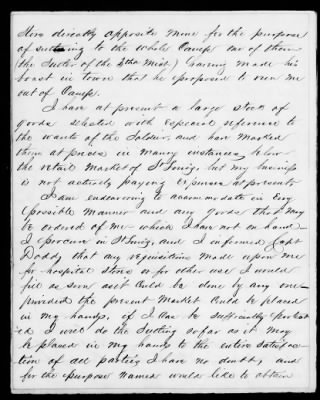 directly opposite mine for the purpose
of sutling to the whole Camp one of them
(the Sutler of the 4th Miss) having made his
boast in town that he proposed to run me
out of Camp.
I have at present a large stock of
goods selected with especial reference to
the wants of the Soldier, and have marked
them at prices in many instances below
the retail market of St Louis, but my business
is not actually paying expenses at present
I am endeavoring to accommodate in every
possible manner and any goods that may
be ordered of me which I have not on hand
I procure in St Louis, and I informed Capt
Dodd, that any requisitions made upon me
for hospital stores or for other use I would
fill as soon as it could be done by any one
provided the present Market could be placed
in my hands, if I can be sufficiently protect
ed I will do the Sutling so far as it may
be placed in my hands to the entire satisfac
tion of all parties I have no doubt, and
for the purpose named would like to obtain